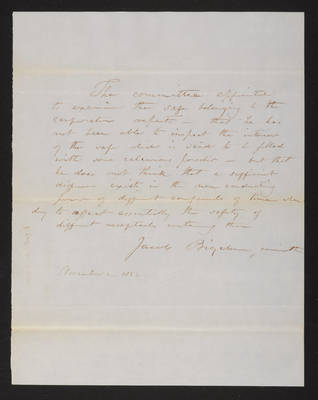 The committee appointed
to examine the safe belonging to the
corporation reports — that he has
not been able to inspect the interior
of the safe which is said to be filled
with some calcareous powder — but that
he does not think that a sufficient
degree exists in the non conducting
power of different compounds of lime
to affect essentially the safety of
different receptacles containing them
Jacob Bigelow, committee
November